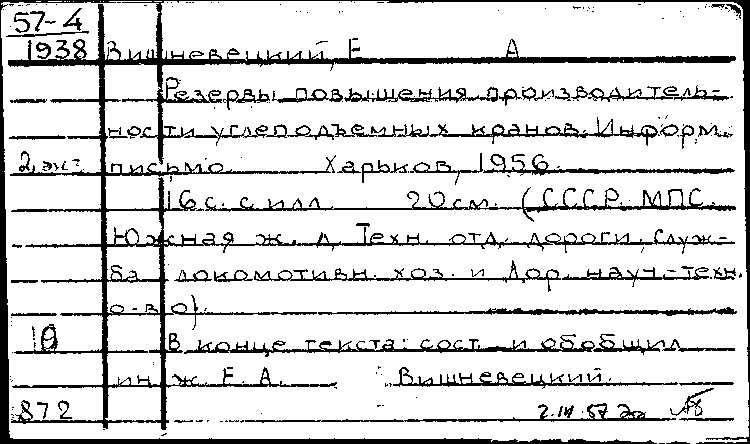 57-4
1938 Вишневецкий, Е А
Резервы повышения производитель-
ности углеподъемных кранов. Информ.
2 экз письмо. Харьков, 1956.
16 с. с илл. 20 см. (СССР. МПС.
Южная ж. д. Техн. отд. дороги, служ-
ба локомотивн. хоз. и Дор. науч.-техн.
о-во).
10 В конце текста: сост. и обобщил
инж. Е. А. Вишневецкий.
872